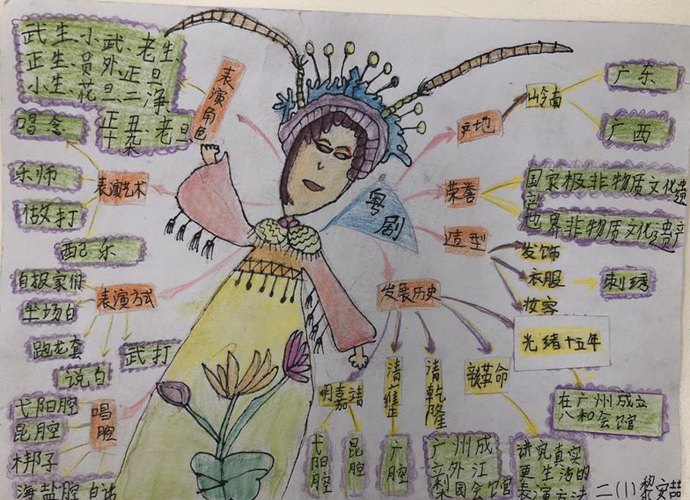 武生小武老生
正生小员外正旦
小生花旦二净
正丑老旦
表演角色
唱念
乐师
做打
配乐
表演艺术
自报家门
坐场白
跑龙套
说白
武打
表演方式
弋阳腔
昆腔
梆子
海盐腔
唱腔
粤剧
产地
岭南
广东
广西
荣誉
国家极非物质文化遗产
世界非物质文化遗产
造型
发饰
衣服
刺绣
妆容
发展历史
明嘉靖
弋阳腔
昆腔
清雍正
广腔
清乾隆
广州成
立外江
会馆
辛革命
讲究真实
更生活的
表演方法
光绪十五年
在广州成立
八和会馆
二(1)